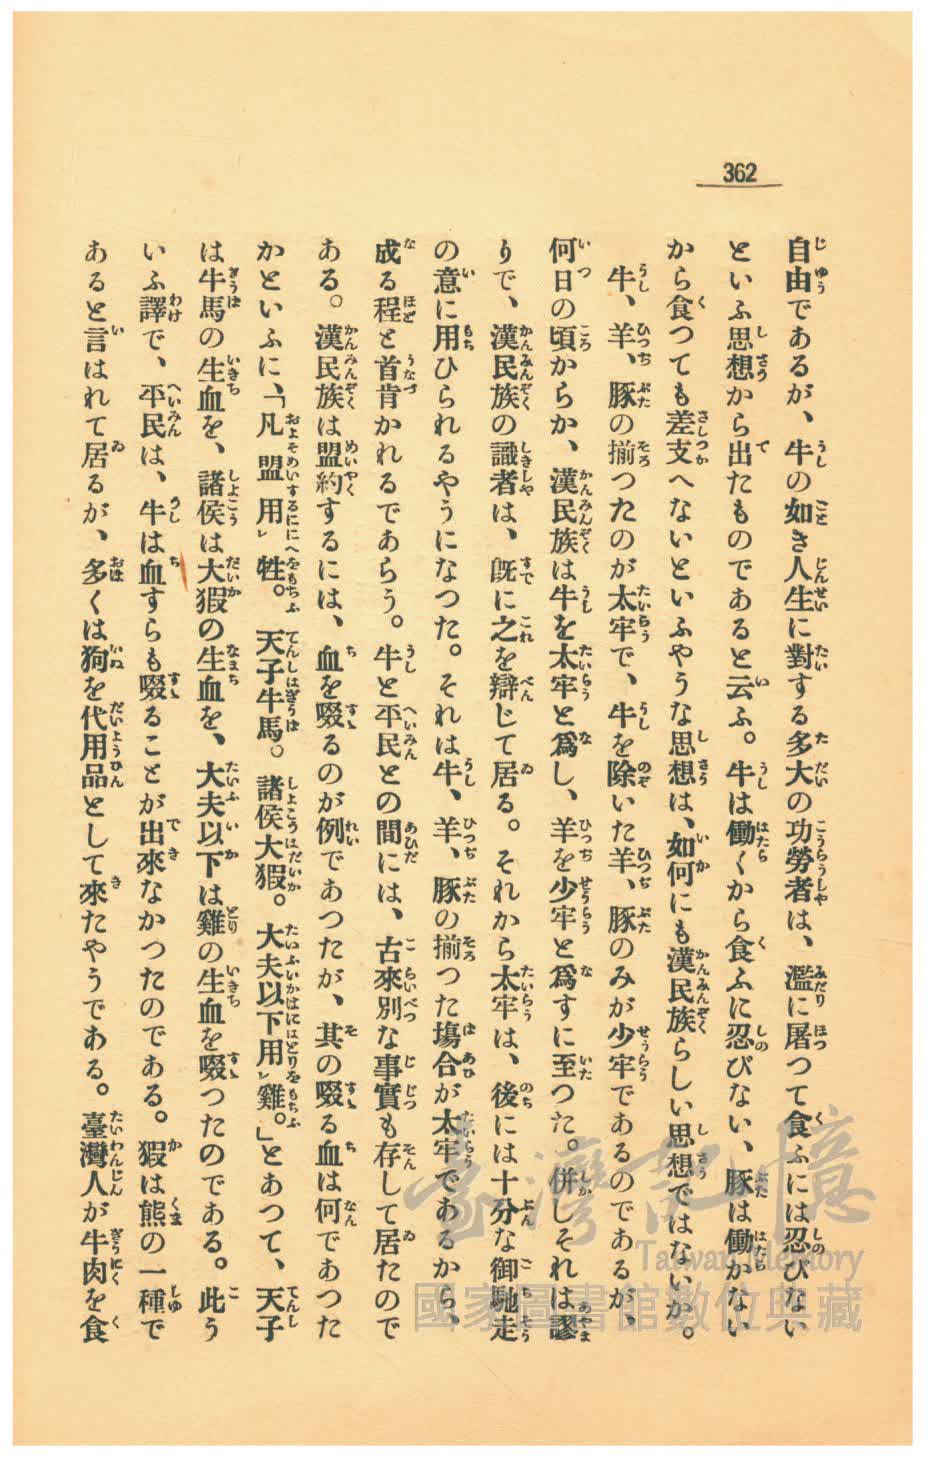 362
自由であるが、牛の如き人生に對する多大の功勞者は、濫に屠つて食ふには忍びない
といふ思想から出たものであると云ふ。牛は働くから食ふに忍びない、豚は働かない
から食つても差支へないといふやうな思想は、如何にも漢民族らしい思想ではないか。
牛、羊、豚の揃つたのが太牢で、牛を除いた羊、豚のみが少牢であるのであるが、
何日の頃からか、漢民族は牛を太牢と爲し、羊を少牢と爲すに至つた。併しそれは謬
りで、漢民族の識者は、既に之を辯じて居る。それから太牢は、後には十分な御馳走
の意に用ひられるやうになつた。それは牛、羊、豚の揃つた塲合が太牢であるから、
成る程と首肯かれるであらう。牛と平民との間には、古來別な事實も存して居たので
ある。漢民族は盟約するには、血を啜るのが例であつたが、其の啜る血は何であつた
かといふに、「凡盟用レ牲。天子牛馬。諸侯大猳。大夫以下用レ雞。」とあつて、天子
は牛馬の生血を、諸侯は大猳の生血を、大夫以下は雞の生血を啜つたのである。此う
いふ譯で、平民は、牛は血すらも啜ることが出來なかつたのである。猳は熊の一種で
あると言はれて居るが、多くは狗を代用品として來たやうである。臺灣人が牛肉を食
臺灣記憶
Taiwan Memory
國家圖書館數位典藏